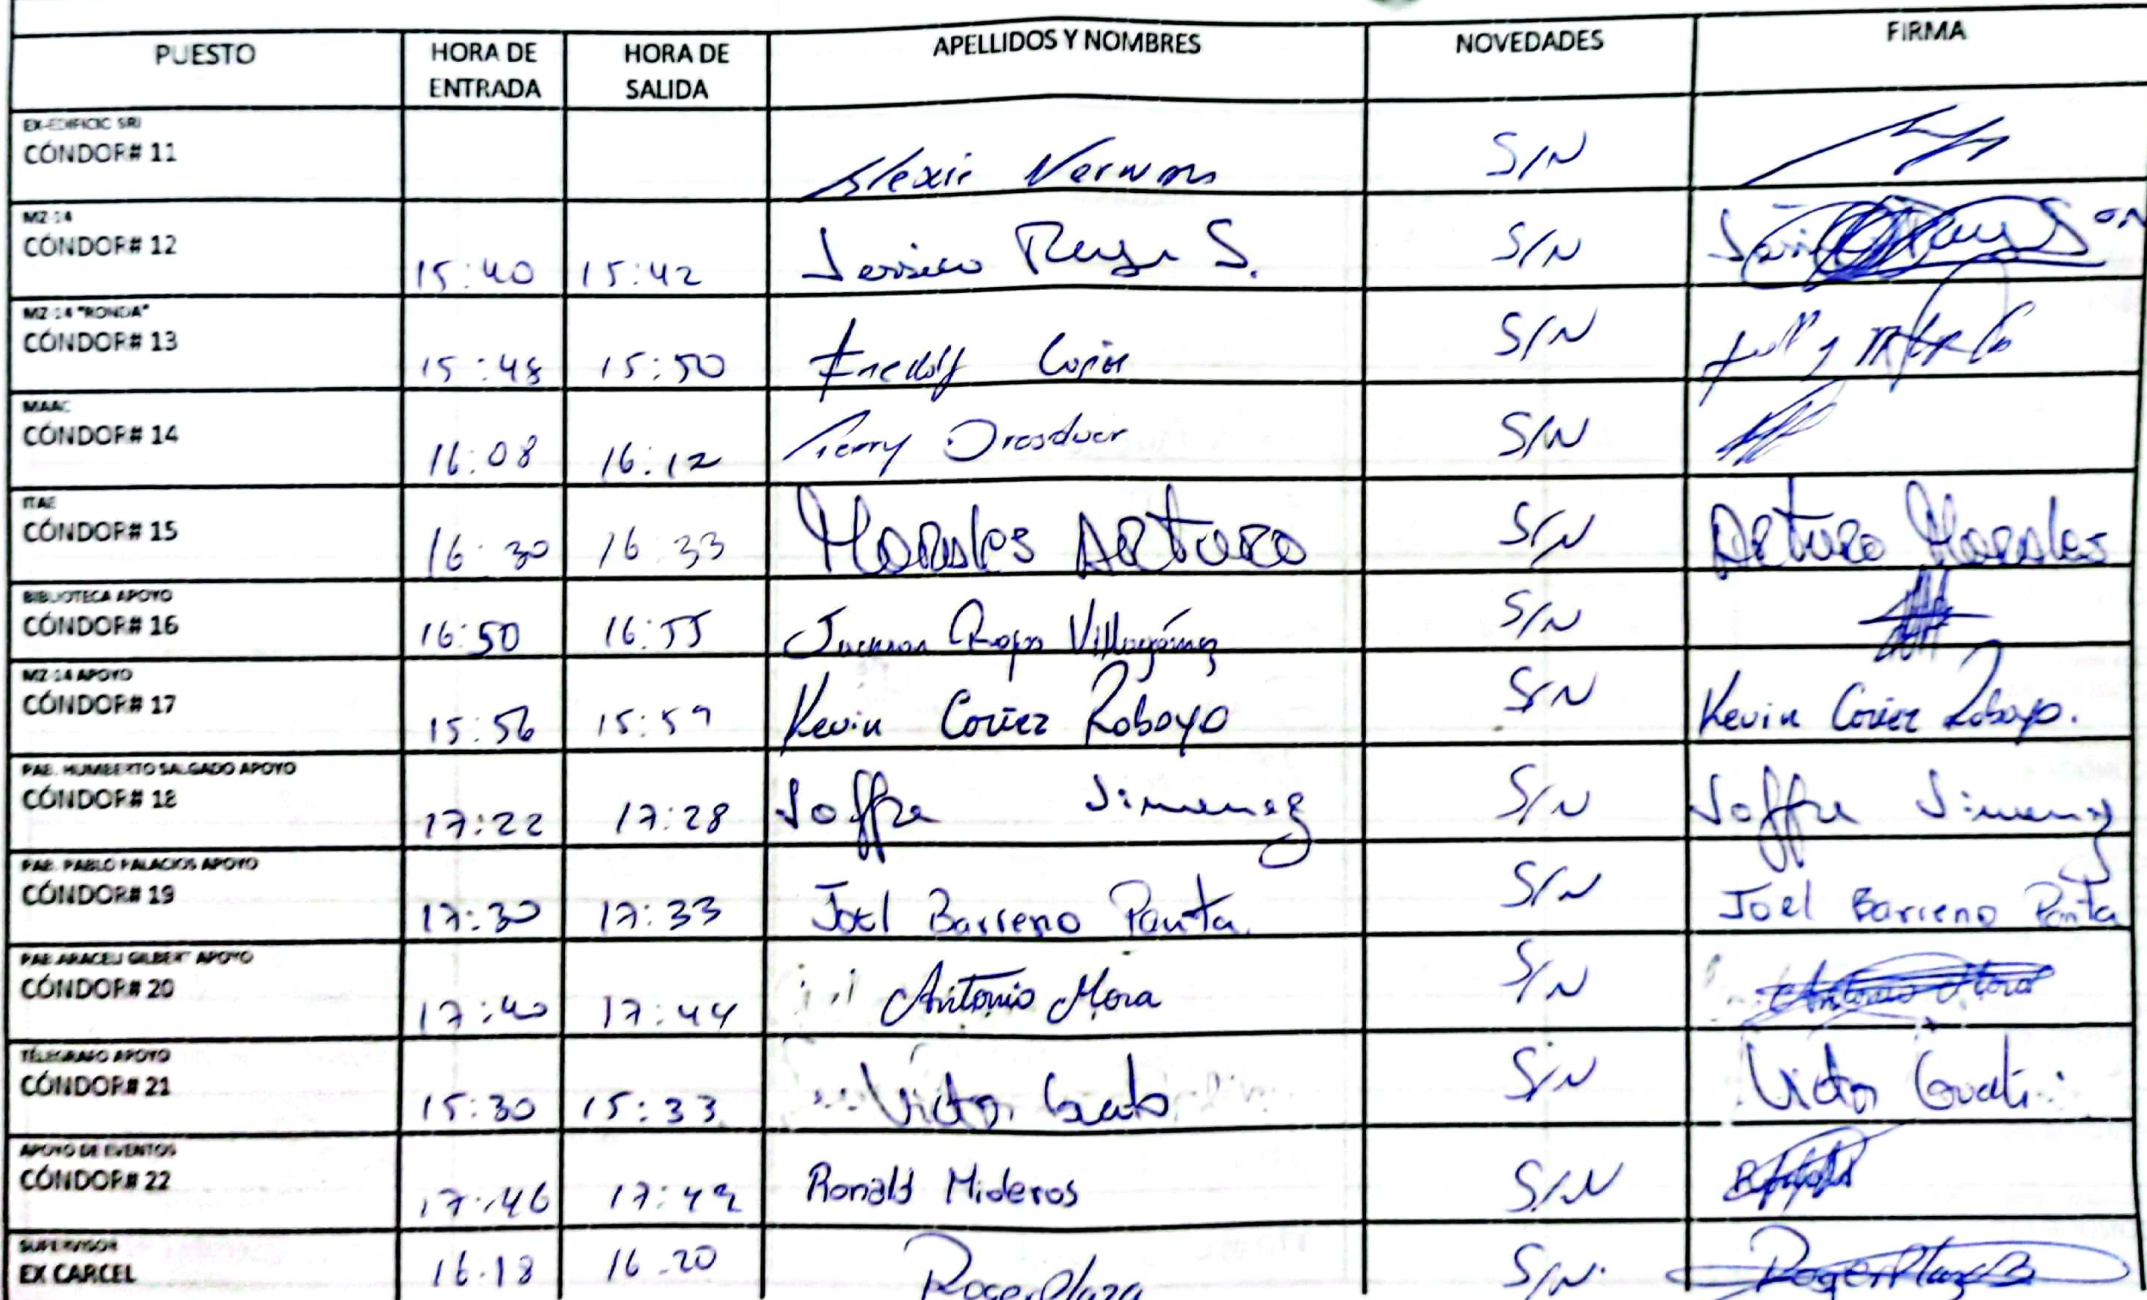 PUESTO HORA DE ENTRADA HORA DE SALIDA APELLIDOS Y NOMBRES NOVEDADES FIRMA
EX-EDIFICIO SRI
CÓNDOR# 11 S/N
MZ-14
CÓNDOR# 12 15:40 15:42 S. S/N
MZ-14 "RONDA"
CÓNDOR# 13 15:48 15:50 Freddy S/N
MAAC
CÓNDOR# 14 16:08 16:12 S/N
ITAE
CÓNDOR# 15 16:30 16:33 Morales Arturo S/N Arturo Morales
BIBLIOTECA APOYO
CÓNDOR# 16 16:50 16:55 Villagómez S/N
MZ-14 APOYO
CÓNDOR# 17 15:56 15:59 Kevin Cortez Roboyo S/N Kevin Cortez Roboyo.
PAB. HUMBERTO SALGADO APOYO
CÓNDOR# 18 17:22 17:28 Joffre Jimenez S/N Joffre Jimenez
PAB. PABLO PALACIOS APOYO
CÓNDOR# 19 17:30 17:33 Joel Barreno Panta. S/N Joel Barreno Panta
PAB ARACELI GILBERT APOYO
CÓNDOR# 20 17:40 17:44 Antonio Mora S/N Antonio Mora
TELEGRAFO APOYO
CÓNDOR# 21 15:30 15:33 Victor S/N Victor
APOYO DE EVENTOS
CÓNDOR# 22 17:46 17:49 Ronald Mideros S/N
SUPERVISOR
EX CARCEL 16:18 16:20 Roger Plaza S/N. Roger Plaza B